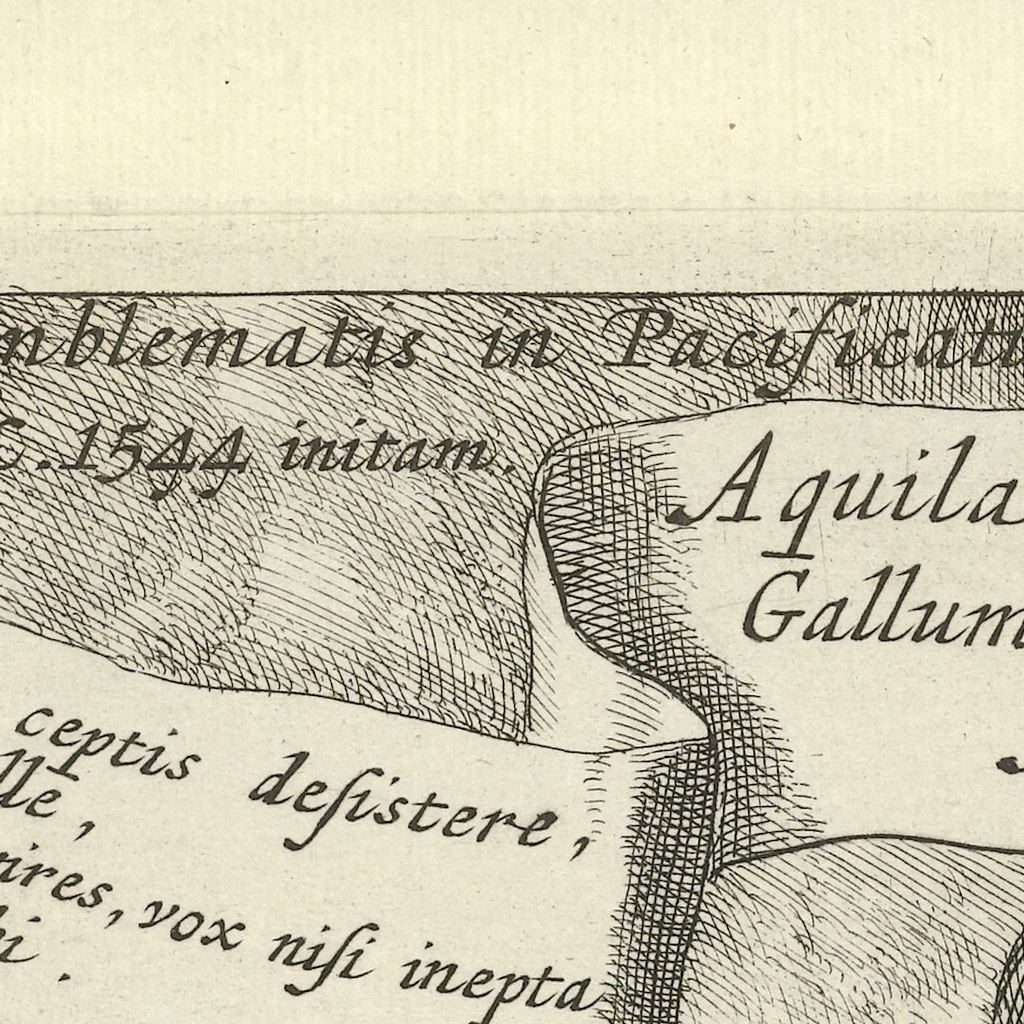 mblematis in Pacificati
C.1544 initam.
Aquila
Gallum
ceptis deſistere,
lle,
vires, vox niſi inepta
hi.